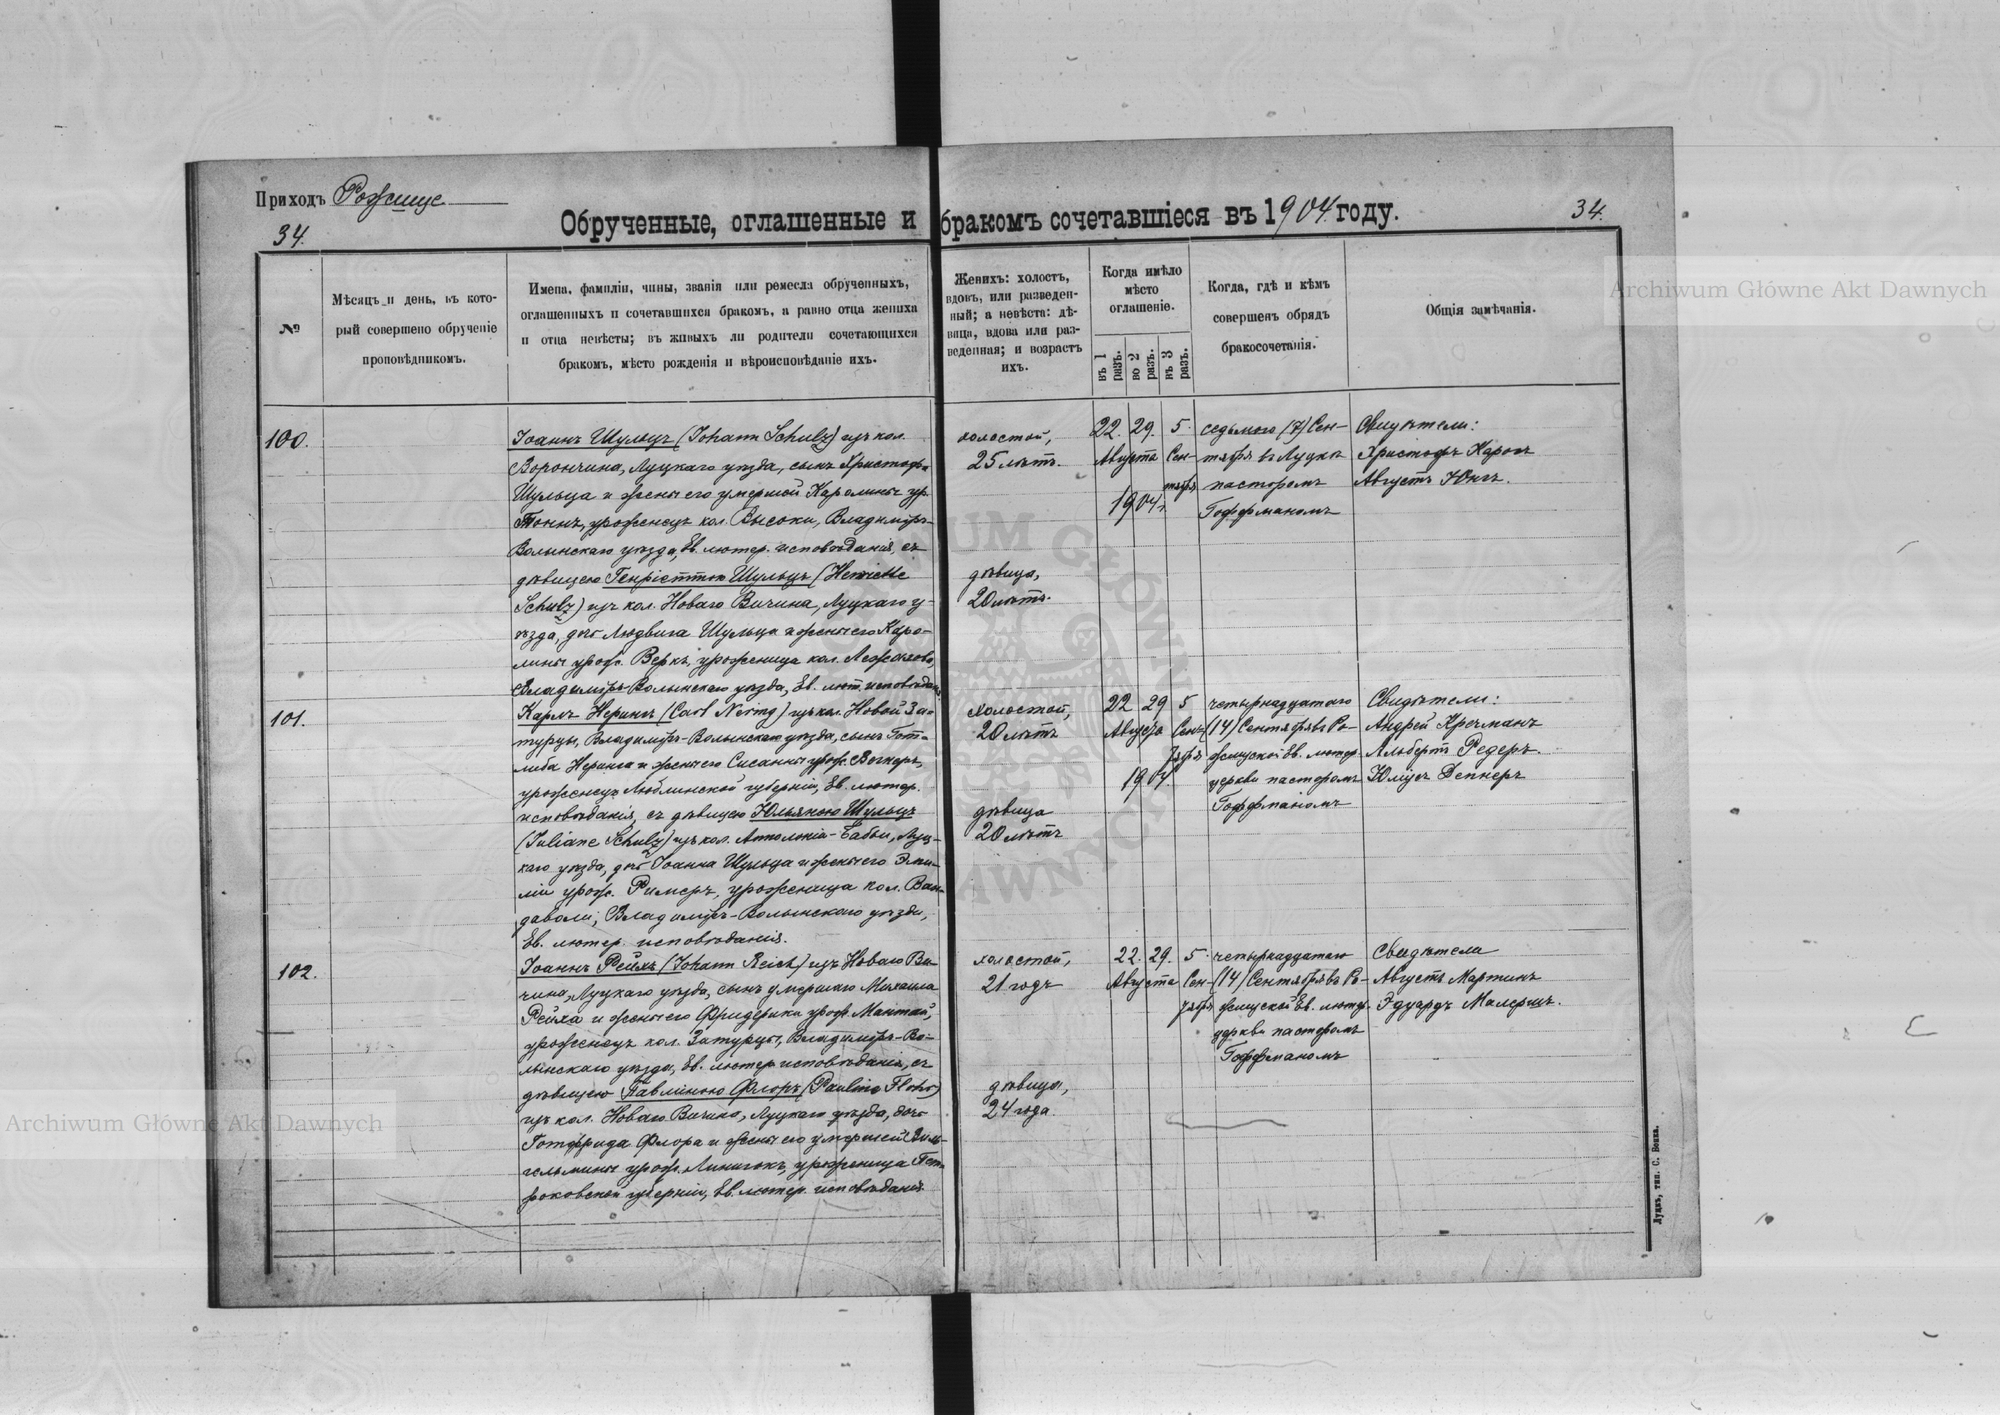 Приходъ Рожище
34.
Обрученные, оглашенные и бракомъ сочетавшіеся въ 1904 году.
34.
№
Мѣсяцъ и день, въ кото-
рый совершено обрученіе
проповѣдникомъ.
Имена, фамиліи, чины, званія или ремесла обрученныхъ,
оглашенныхъ и сочетавшихся бракомъ, а равно отца жениха
и отца невѣсты; въ живыхъ ли родители сочетающихся
бракомъ, мѣсто рожденія и вѣроисповѣданіе ихъ.
Женихъ: холостъ,
вдовъ, или разведен-
ный; а невѣста: дѣ-
вица, вдова или раз-
веденная; и возрастъ
ихъ.
Когда имѣло
мѣсто
оглашеніе.
въ 1 разъ.
во 2 разъ.
въ 3 разъ.
Когда, гдѣ и кѣмъ
совершенъ обрядъ
бракосочетанія.
Общія замѣчанія.
100.
Іоаннъ Шульцъ (Johann Schulz) изъ кол.
Ворончина, Луцкаго уѣзда, сынъ Христофа
Шульца и жены его умершой Каролины ур.
Тоннъ, уроженецъ кол. Высоки, Владимiръ-
Волынскаго уѣзда, Ев. лютер. исповѣданія, съ
дѣвицею Генріеттою Шульцъ (Henriette
Schulz) изъ кол. Новаго Вичина, Луцкаго у-
ѣзда, дочь Людвига Шульца и жены его Каро-
лины урож. Веркъ, уроженица кол.
Владимiръ-Волынскаго уѣзда, Ев. лют. исповѣданія
холостой,
25 лѣтъ.
дѣвица,
20 лѣтъ.
22. 29. 5.
Августа Сен-
тября
1904 г.
седьмого (7) Сен-
тября въ Луцкѣ
пасторомъ
Гоффманомъ
Свидѣтели:
Христофъ Кароль
Августъ Юнгъ.
101.
Карлъ Нерингъ (Carl Nering) изъ кол. Новой За-
турцы, Владимiръ-Волынскаго уѣзда, сынъ Гот-
либа Неринга и жены его Сусанны урож. Вегнеръ,
уроженецъ Люблинской губерніи, Ев. лютер.
исповѣданія, съ дѣвицею Юльяною Шульцъ
(Juliane Schulz) изъ кол. Антонія-Бабьи, Луц-
каго уѣзда, дочь Іоанна Шульца и жены его Эми-
ліи урож. Римеръ, уроженица кол. Ван-
даволи, Владимiръ-Волынскаго уѣзда,
Ев. лютер. исповѣданія.
холостой,
20 лѣтъ
дѣвица
20 лѣтъ
22 29 5
Августа Сен-
тября
1904.
четырнадцатаго
(14) Сентября въ Ро-
жищской Ев. лютер.
церкви пасторомъ
Гоффманомъ
Свидѣтели:
Андрей Кречманъ
Альбертъ Редеръ.
Юлiусъ Депнеръ
102.
Іоаннъ Рейхъ (Johann Reich) изъ Новаго Ви-
чина, Луцкаго уѣзда, сынъ умершаго Михаила
Рейха и жены его Фридерики урож. Мантай,
уроженецъ кол. Затурцы, Владимiръ-Во-
лынскаго уѣзда, Ев. лютер. исповѣданія, съ
дѣвицею Павлиною Флоръ (Pauline Flohr)
изъ кол. Новаго Вичина, Луцкаго уѣзда, дочь
Готфрида Флора и жены его умершей Виль-
гельмины урож. уроженица Пет-
роковской губерніи, Ев. лютер. исповѣданія
холостой,
21 годъ
дѣвица,
24 года.
22. 29. 5.
Августа Сен-
тября
четырнадцатаго
(14) Сентября въ Ро-
жищской Ев. лютер.
церкви пасторомъ
Гоффманомъ
Свидѣтели
Августъ Мартинъ
Эдуардъ Малершъ.
Луцкъ, тип. С. Бонка.
Archiwum Główne Akt Dawnych
Archiwum Główne Akt Dawnych